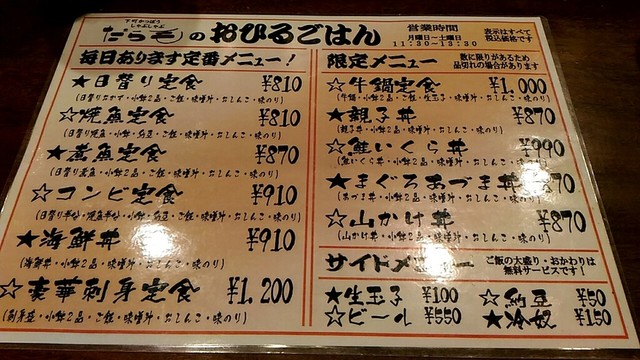 下町かっぽう
しゃぶしゃぶ
だら毛のおひるごはん
営業時間
月曜日〜土曜日
11:30~13:30
表示はすべて
税込価格です
毎日あります定番メニュー！
★日替り定食 ¥810
(日替りおかず・小鉢2品・ご飯・味噌汁・おしんこ・味のり)
☆焼魚定食 ¥810
(日替り焼魚・小鉢・納豆・ご飯・味噌汁・おしんこ・味のり)
★煮魚定食 ¥870
(日替り煮魚・小鉢2品・ご飯・味噌汁・おしんこ・味のり)
☆コンビ定食 ¥910
・ご飯・味噌汁・おしんこ・味のり)
★海鮮丼 ¥910
(海鮮丼・小鉢2品・味噌汁・おしんこ・味のり)
☆豪華刺身定食 ¥1,200
(刺身盛・小鉢2品・ご飯・味噌汁・おしんこ・味のり)
限定メニュー
数に限りがあるため
品切れの場合があります
☆牛鍋定食 ¥1,000
(牛鍋・小鉢2品・ご飯・生玉子・味噌汁・おしんこ・味のり)
★親子丼 ¥870
(親子丼・小鉢2品・味噌汁・おしんこ・味のり)
☆鮭いくら丼 ¥990
(鮭いくら丼・小鉢2品・味噌汁・おしんこ・味のり)
★まぐろあづま丼 70
(あづま丼・小鉢2品・味噌汁・おしんこ・味のり)
☆山かけ丼 ¥870
(山かけ丼・小鉢2品・味噌汁・おしんこ・味のり)
サイドメニュー
ご飯の大盛り・おかわりは
無料サービスです！
★生玉子 ¥100 ☆納豆 ¥50
☆ビール ¥550 ★冷奴 ¥150